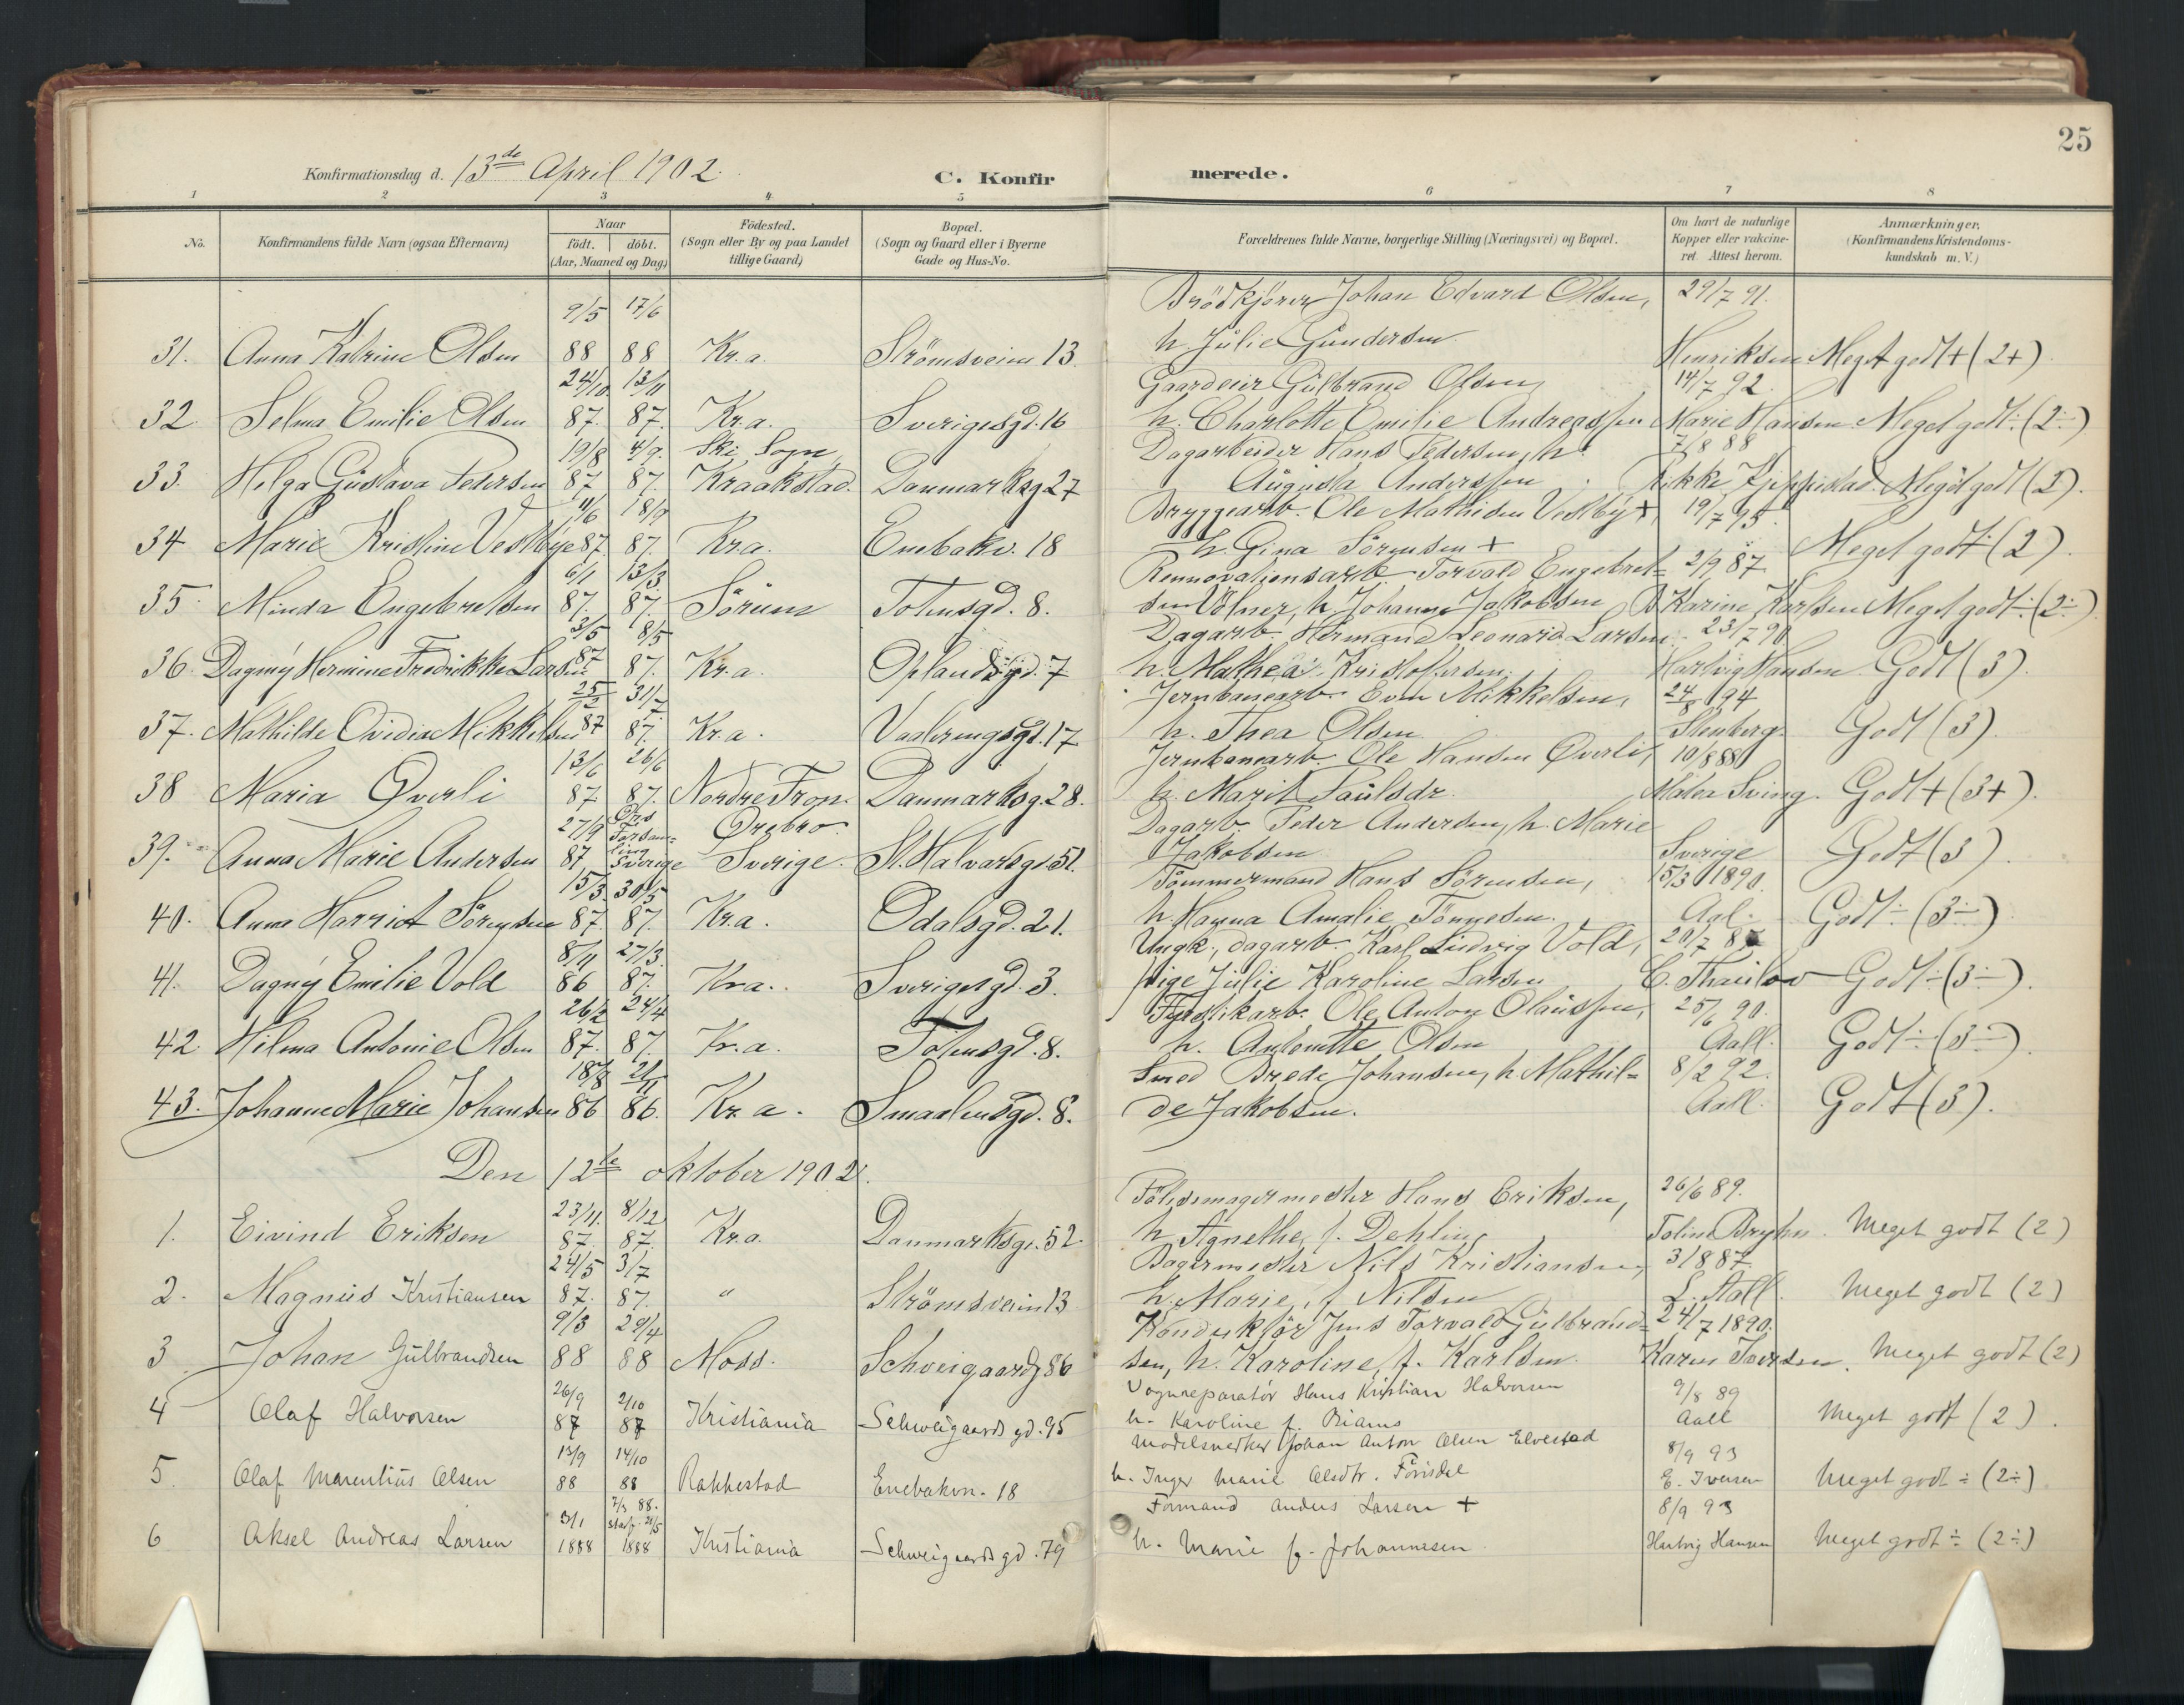 25
Konfirmationsdag d. 13de April 1902.
C. Konfirmerede.
1 2 3 4 5 6 7 8
No.
Konfirmandens fulde Navn (ogsaa Efternavn)
Naar
födt. döbt.
(Aar, Maaned og Dag)
Födested.
(Sogn eller By og paa Landet
tillige Gaard)
Bopæl.
(Sogn og Gaard eller i Byerne
Gade og Hus-No.
Forældrenes fulde Navne, borgerlige Stilling (Næringsvei) og Bopæl.
Om havt de naturlige
Kopper eller vakcine-
ret Attest herom.
Anmærkninger.
(Konfirmandens Kristendoms-
kundskab m. V.)
9/5 17/6 Brödkjörer Johan Edvard Olsen, 29/7 91.
31. Anna Katrine Olsen 88 88 Kr.a. Strömsveien 13. h. Julie Gundersen Henriksen Meget godt+ (2+)
24/10 13/11 Gaardeier Gulbrand Olsen, 14/7 92.
32. Selma Emilie Olsen 87. 87. Kr.a. Sverigesgd. 16 h. Charlotte Emilie Andreassen Marie Hansen. Meget godt÷ (2÷)
19/8 4/9. Ski Sogn, Dagarbeider Hans Pedersen, h. 7/8 88
33. Helga Gustava Pedersen 87 87. Kraakstad. Danmarksg 27 Augusta Anderssen Rikke Meget godt (2).
11/6 18/9 Bryggearb. Ole Mathisen Vestby +, 19/7 95.
34 Marie Kristine Vestbye 87. 87. Kr.a. Enebakv. 18 h. Gina Sörensen + Meget godt (2).
6/1 13/3 Rennovationsarb. Torvald Engebret= 2/9 87
35. Minda Engebretsen 87. 87. Sörum Totensgd. 8. sen Völner, h. Johanne Jakobsen Karine Karlsen Meget godt÷ (2÷)
3/5 8/5 Dagarb. Hermand Leonard Larsen. 23/7 90
36. Dagny Hermine Fredrikke Larsen 87 87. Kr.a. Oplandsgd. 7 h. Mathea Kristoffersen. Hartvig Hansen Godt (3).
31/7 Jernbanearb. Even Mikkelsen, 24/8 194
37. Mathilde Ovidia Mikkelsen 87 87. Kr.a. Vaaleringsgd. 17 h. Thea Olsen Stenberg. Godt (3)
13/6 26/6 Jernbanearb. Ole Hansen Øverli, 10/8 88
38 Maria Øverli 87 87. Nordre Fron. Danmarksg. 28. h. Marit Paulsdr. Malea Sving. Godt+ (3+).
27/9 Örebro. Dagarb. Peder Andersen, h. Marie
39. Anna Marie Andersen 87 Sverige Sverige. St. Halvardsgd. 51. Jakobsen Sverige Godt (3).
15/3. 30/5 Tömmermand Hans Sörensen, 15/3 1890.
40. Anna Harriet Sörensen 87. 87. Kr.a. Odalsgd. 21. h. Hanna Amalie Tönnesen. Aal. Godt÷ (3÷)
8/11 27/3. Ungk., dagarb. Karl Ludvig Vold, 20/7 87
41. Dagny Emilie Vold 86 87. Kr.a. Sverigesgd. 3. pige Julie Karoline Larsen C. Thaulow Godt÷ (3÷).
26/2 24/4 Fabrikarb. Ole Anton Olaussen, 25/6 90.
42. Hilma Antonie Olsen 87. 87. Kr.a. Totensgd. 8. h. Antonette Olsen Aall. Godt÷ (3÷).
18/8 21/11 Smed Brede Johansen, h. Mathil= 8/2 92.
43. Johanne Marie Johansen 86 86. Kr.a. Smaalensgd. 8. de Jakobsen. Aall. Godt (3).
Den 12te oktober 1902.
23/11. 8/12 Pölsemagermester Hans Eriksen, 26/6 89.
1. Eivind Eriksen 87. 87. Kr.a. Danmarksgd. 52. h. Agnethe, f. Dehling Toline Bryhn. Meget godt (2)
24/5 3/7 Bagermester Nils Kristiansen, 3/8 87.
2. Magnus Kristiansen 87. 87. " Strömsveien 13 h. Marie, f. Nilsen L. Aall. Meget godt (2)
9/3 29/4 Konduktör Jens Torvald Gulbrand= 24/7 1890.
3 Johan Gulbrandsen 88 88 Moss. Schweigaardsg 86 sen, h. Karoline, f. Karlsen. Karen Iversen. Meget godt (2)
26/9 2/10 Vognreparatör Hans Kristian Halvorsen 9/8 89
4 Olaf Halvorsen 87 87 Kristiania Schweigaards gd. 95 h. Karoline f. Aall Meget godt (2).
13/9 14/10 Modelsnedker Johan Anton Olsen Elvestad 8/9 93
5. Olaf Marentius Olsen 88 88 Rakkestad Enebakvn. 18 h. Inger Marie Olsdtr. E. Iversen Meget godt ÷ (2÷)
3/1 7/3 88. stadf. 21/5 Formand Anders Larsen + 8/9 93
6 Aksel Andreas Larsen 1888 1888 Kristiania Schweigaards gd. 79 h. Marie f. Johannesen Hartvig Hansen Meget godt ÷ (2÷)